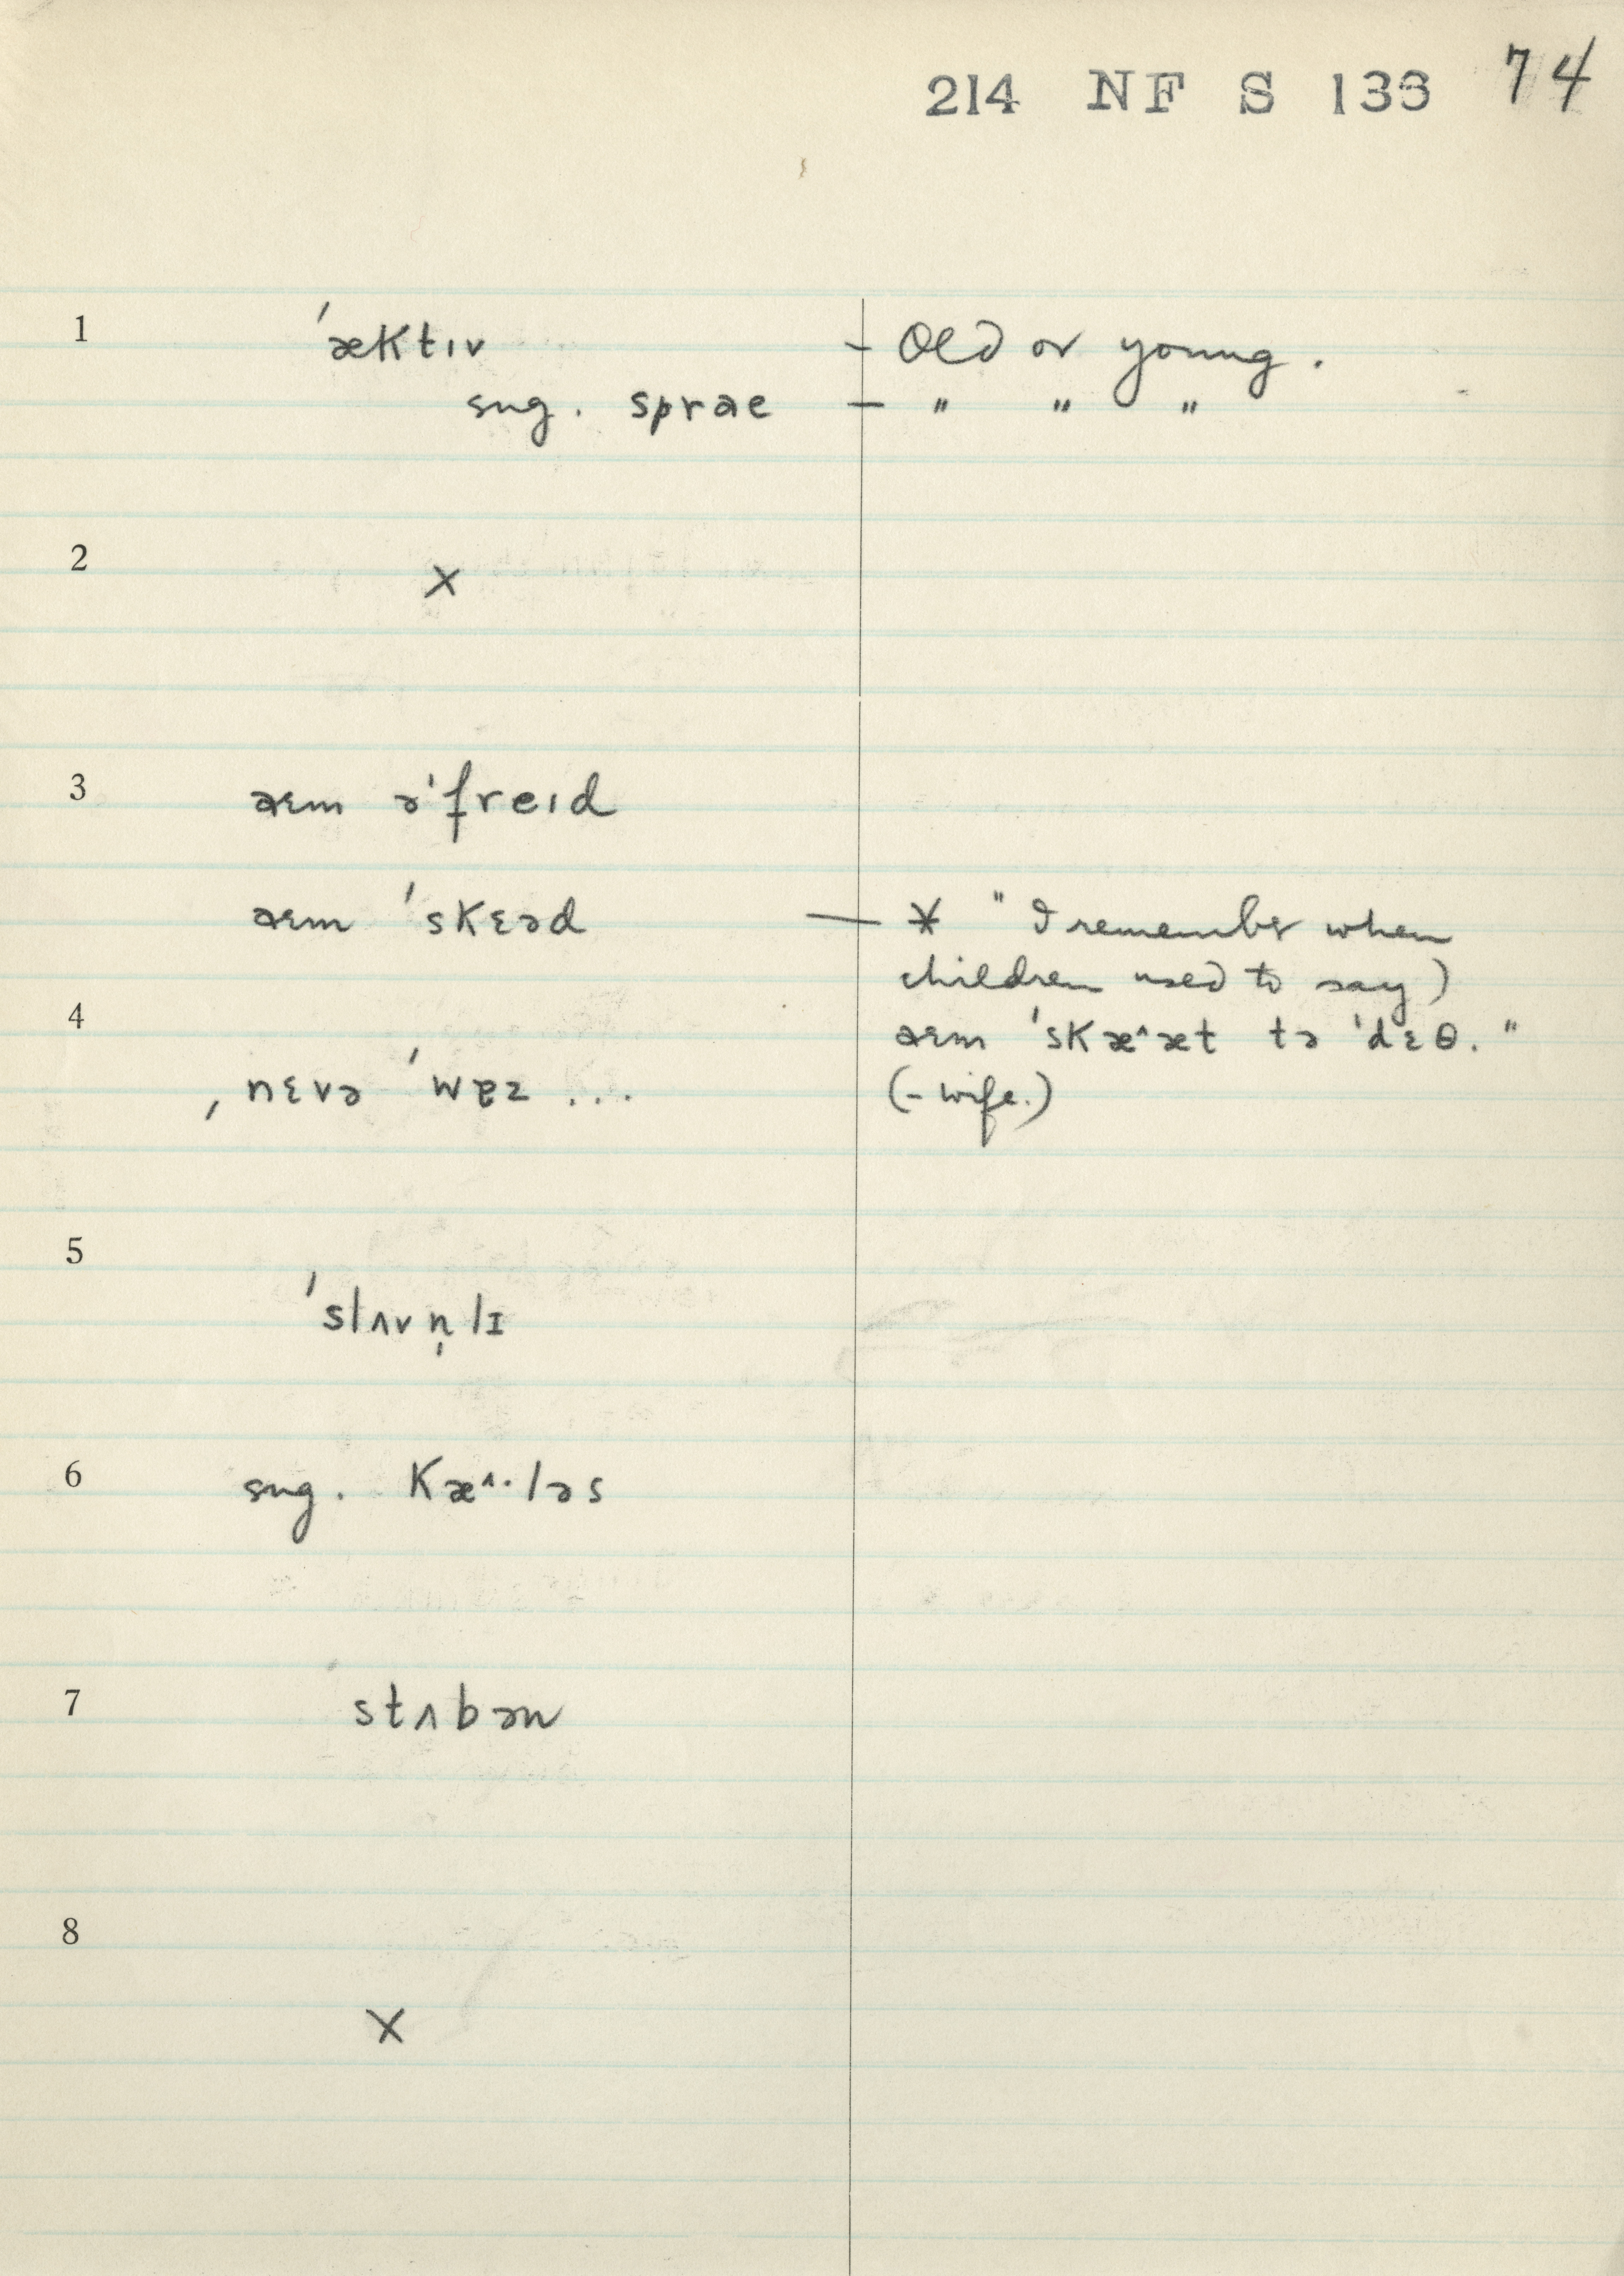 214 NF S 133 74
1 ˈæktɪv – Old or young.
sug. sprae – " " "
2 ×
3 aɛm əˈfreɪd
aɛm ˈskɛəd — * "I remember when
children used to say)
4 aɛm ˈskæ^æt tə ˈdɛθ."
ˌnɛvə ˈwɐz ... (– wife.)
5 ˈslʌvn̩lɪ
6 sug. kæ^·ləs
7 stʌbən
8 ×